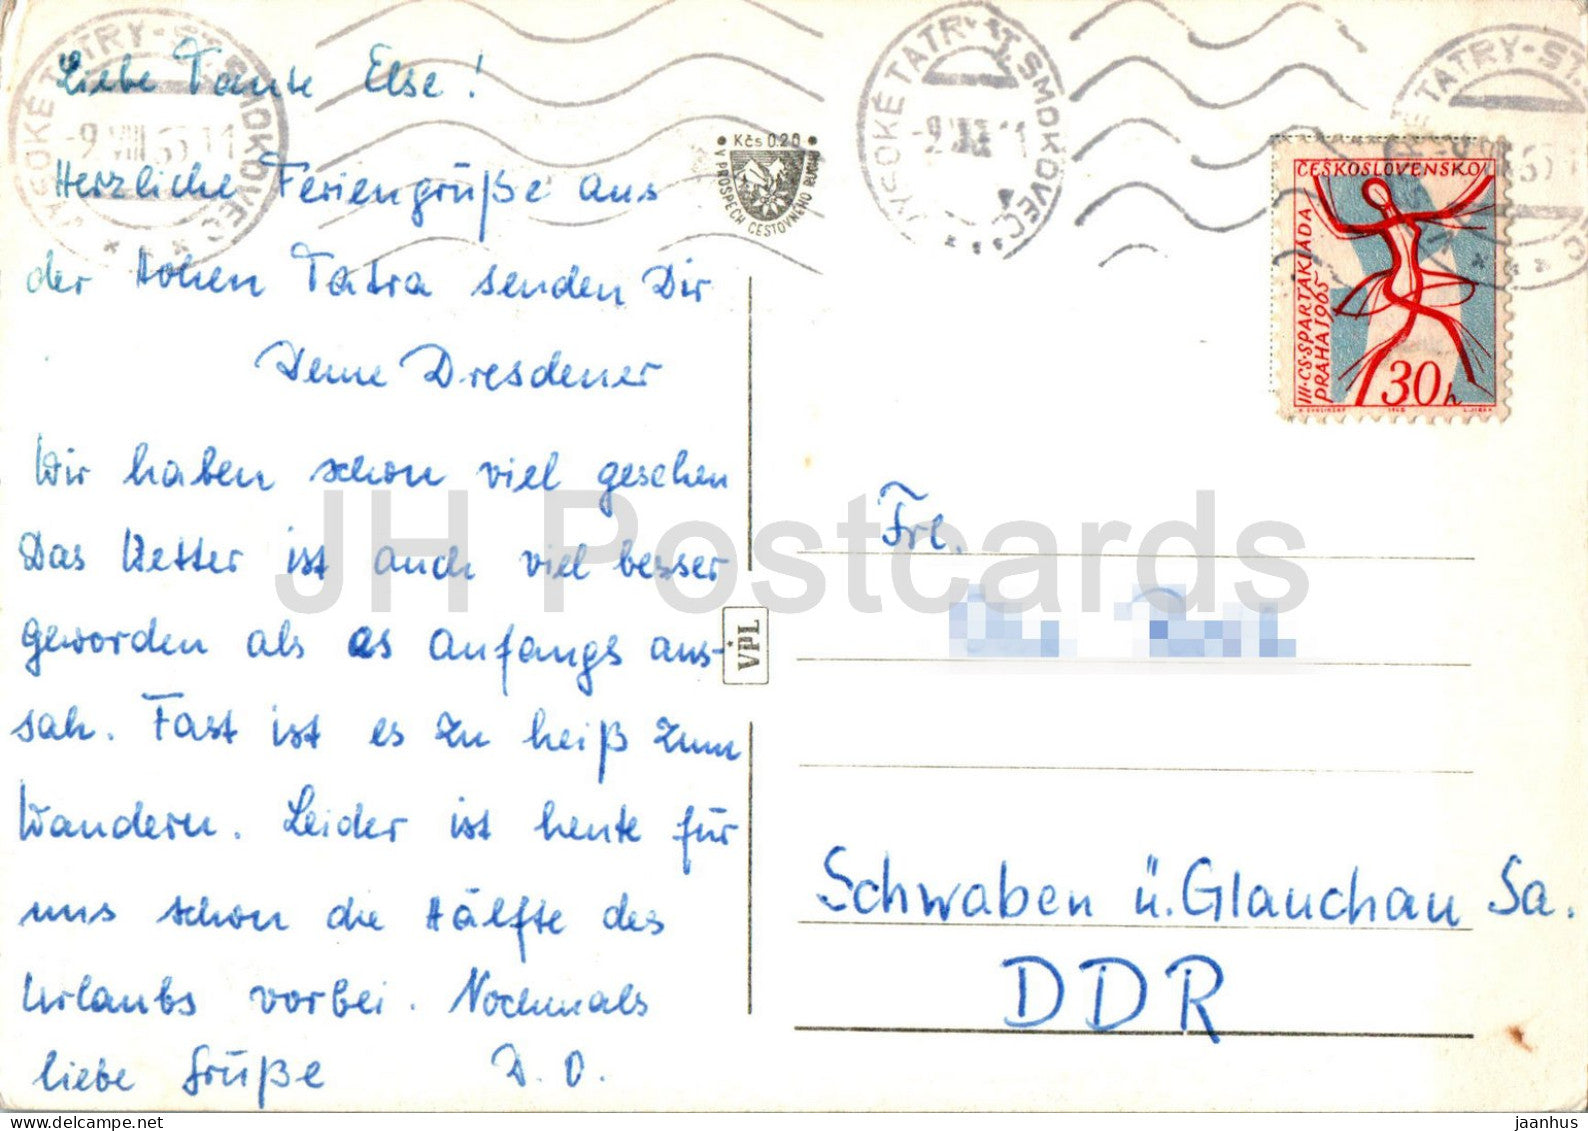 Liebe Tante Else!
Herzliche Feriengrüße aus
der Hohen Tatra senden Dir
Deine Dresdener
Wir haben schon viel gesehen
Das Wetter ist auch viel besser
geworden als es Anfangs aus-
sah. Fast ist es zu heiß zum
Wandern. Leider ist heute für
uns schon die Hälfte des
Urlaubs vorbei. Nochmals
liebe Grüße D. O.
VYSOKÉ TATRY-ST. SMOKOVEC
-9.VIII.65.11
Kčs 0.20
V PROSPĚCH CESTOVNÉHO RUCHU
VYSOKÉ TATRY-ST. SMOKOVEC
TATRY-ST.S
ČESKOSLOVENSKO
III·CS·SPARTAKIÁDA
PRAHA 1965
30h
1965
VPL
Frl.
Schwaben ü. Glauchau Sa.
DDR
JH Postcards
jaanhus